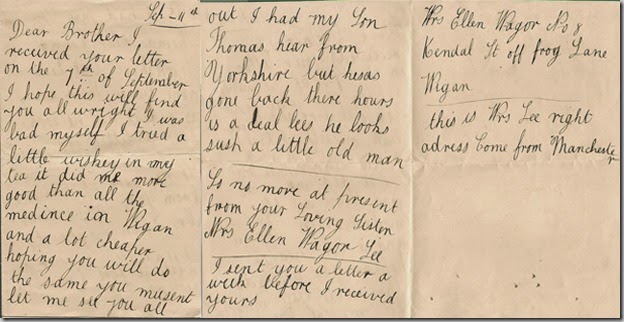 Sep - 11th
Dear Brother I
received your letter
on the 7th of September
I hope this will find
you all wright I was
bad myself I tried a
little wiskey in my
tea it did me more
good than all the
medince ion Wigan
and a lot cheaper
hoping you will do
the same you musent
let me see you all
out I had my Son
Thomas hear from
Yorkshire but hesas
gone back there hours
is a deal lees he looks
sush a little old man
So no more at present
from your Loving Sister
Mrs Ellen Wagor Lee
I sent you a letter a
week before I received
yours
Mrs Ellen Wagor No 8
Kendal St off frog Lane
Wigan
this is Mrs Lee right
adress Come from Manchester